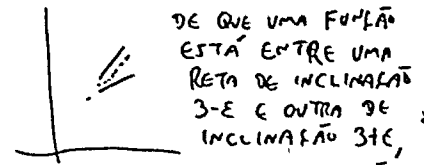 DE QUE UMA FUNÇÃO
ESTÁ ENTRE UMA
RETA DE INCLINAÇÃO
3-ε E OUTRA DE
INCLINAÇÃO 3+ε,